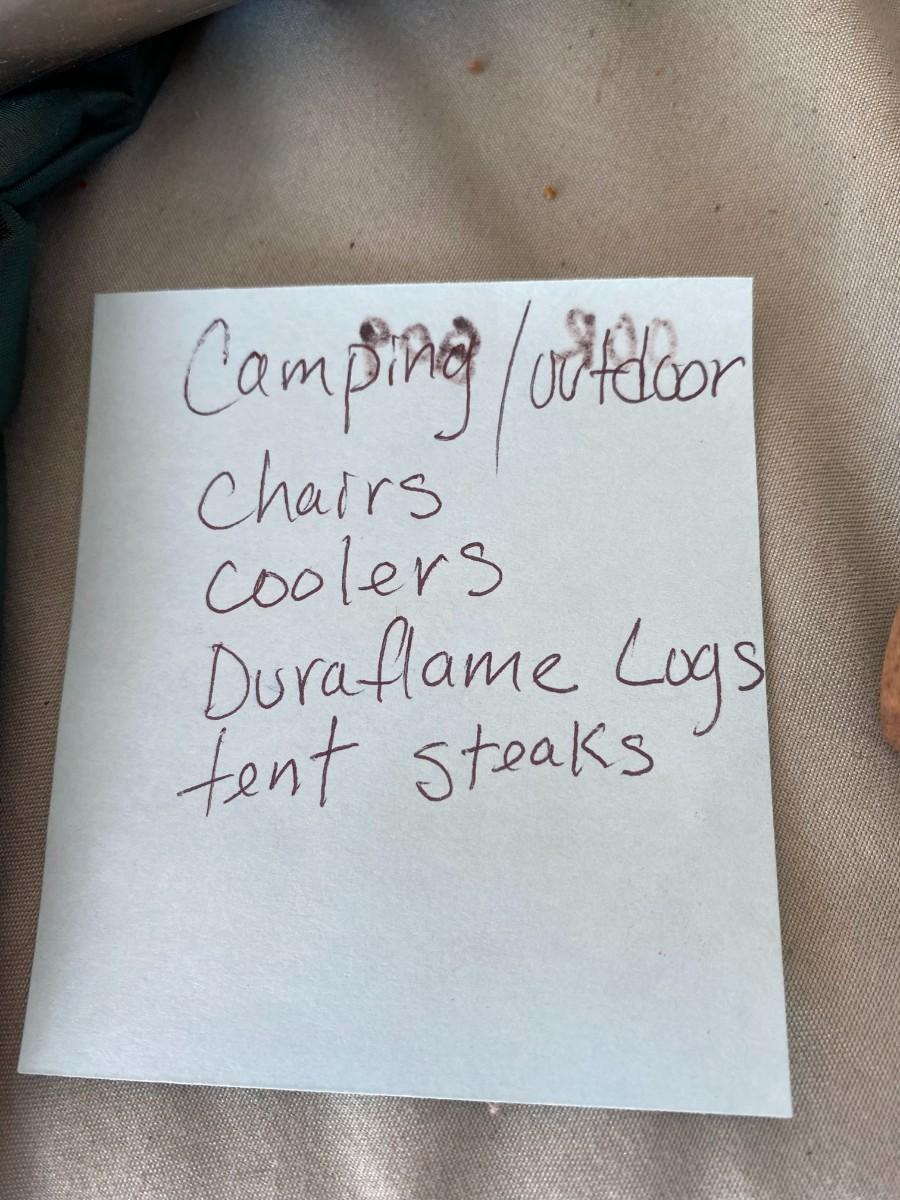 Camping/outdoor
Chairs
coolers
Duraflame Logs
tent steaks